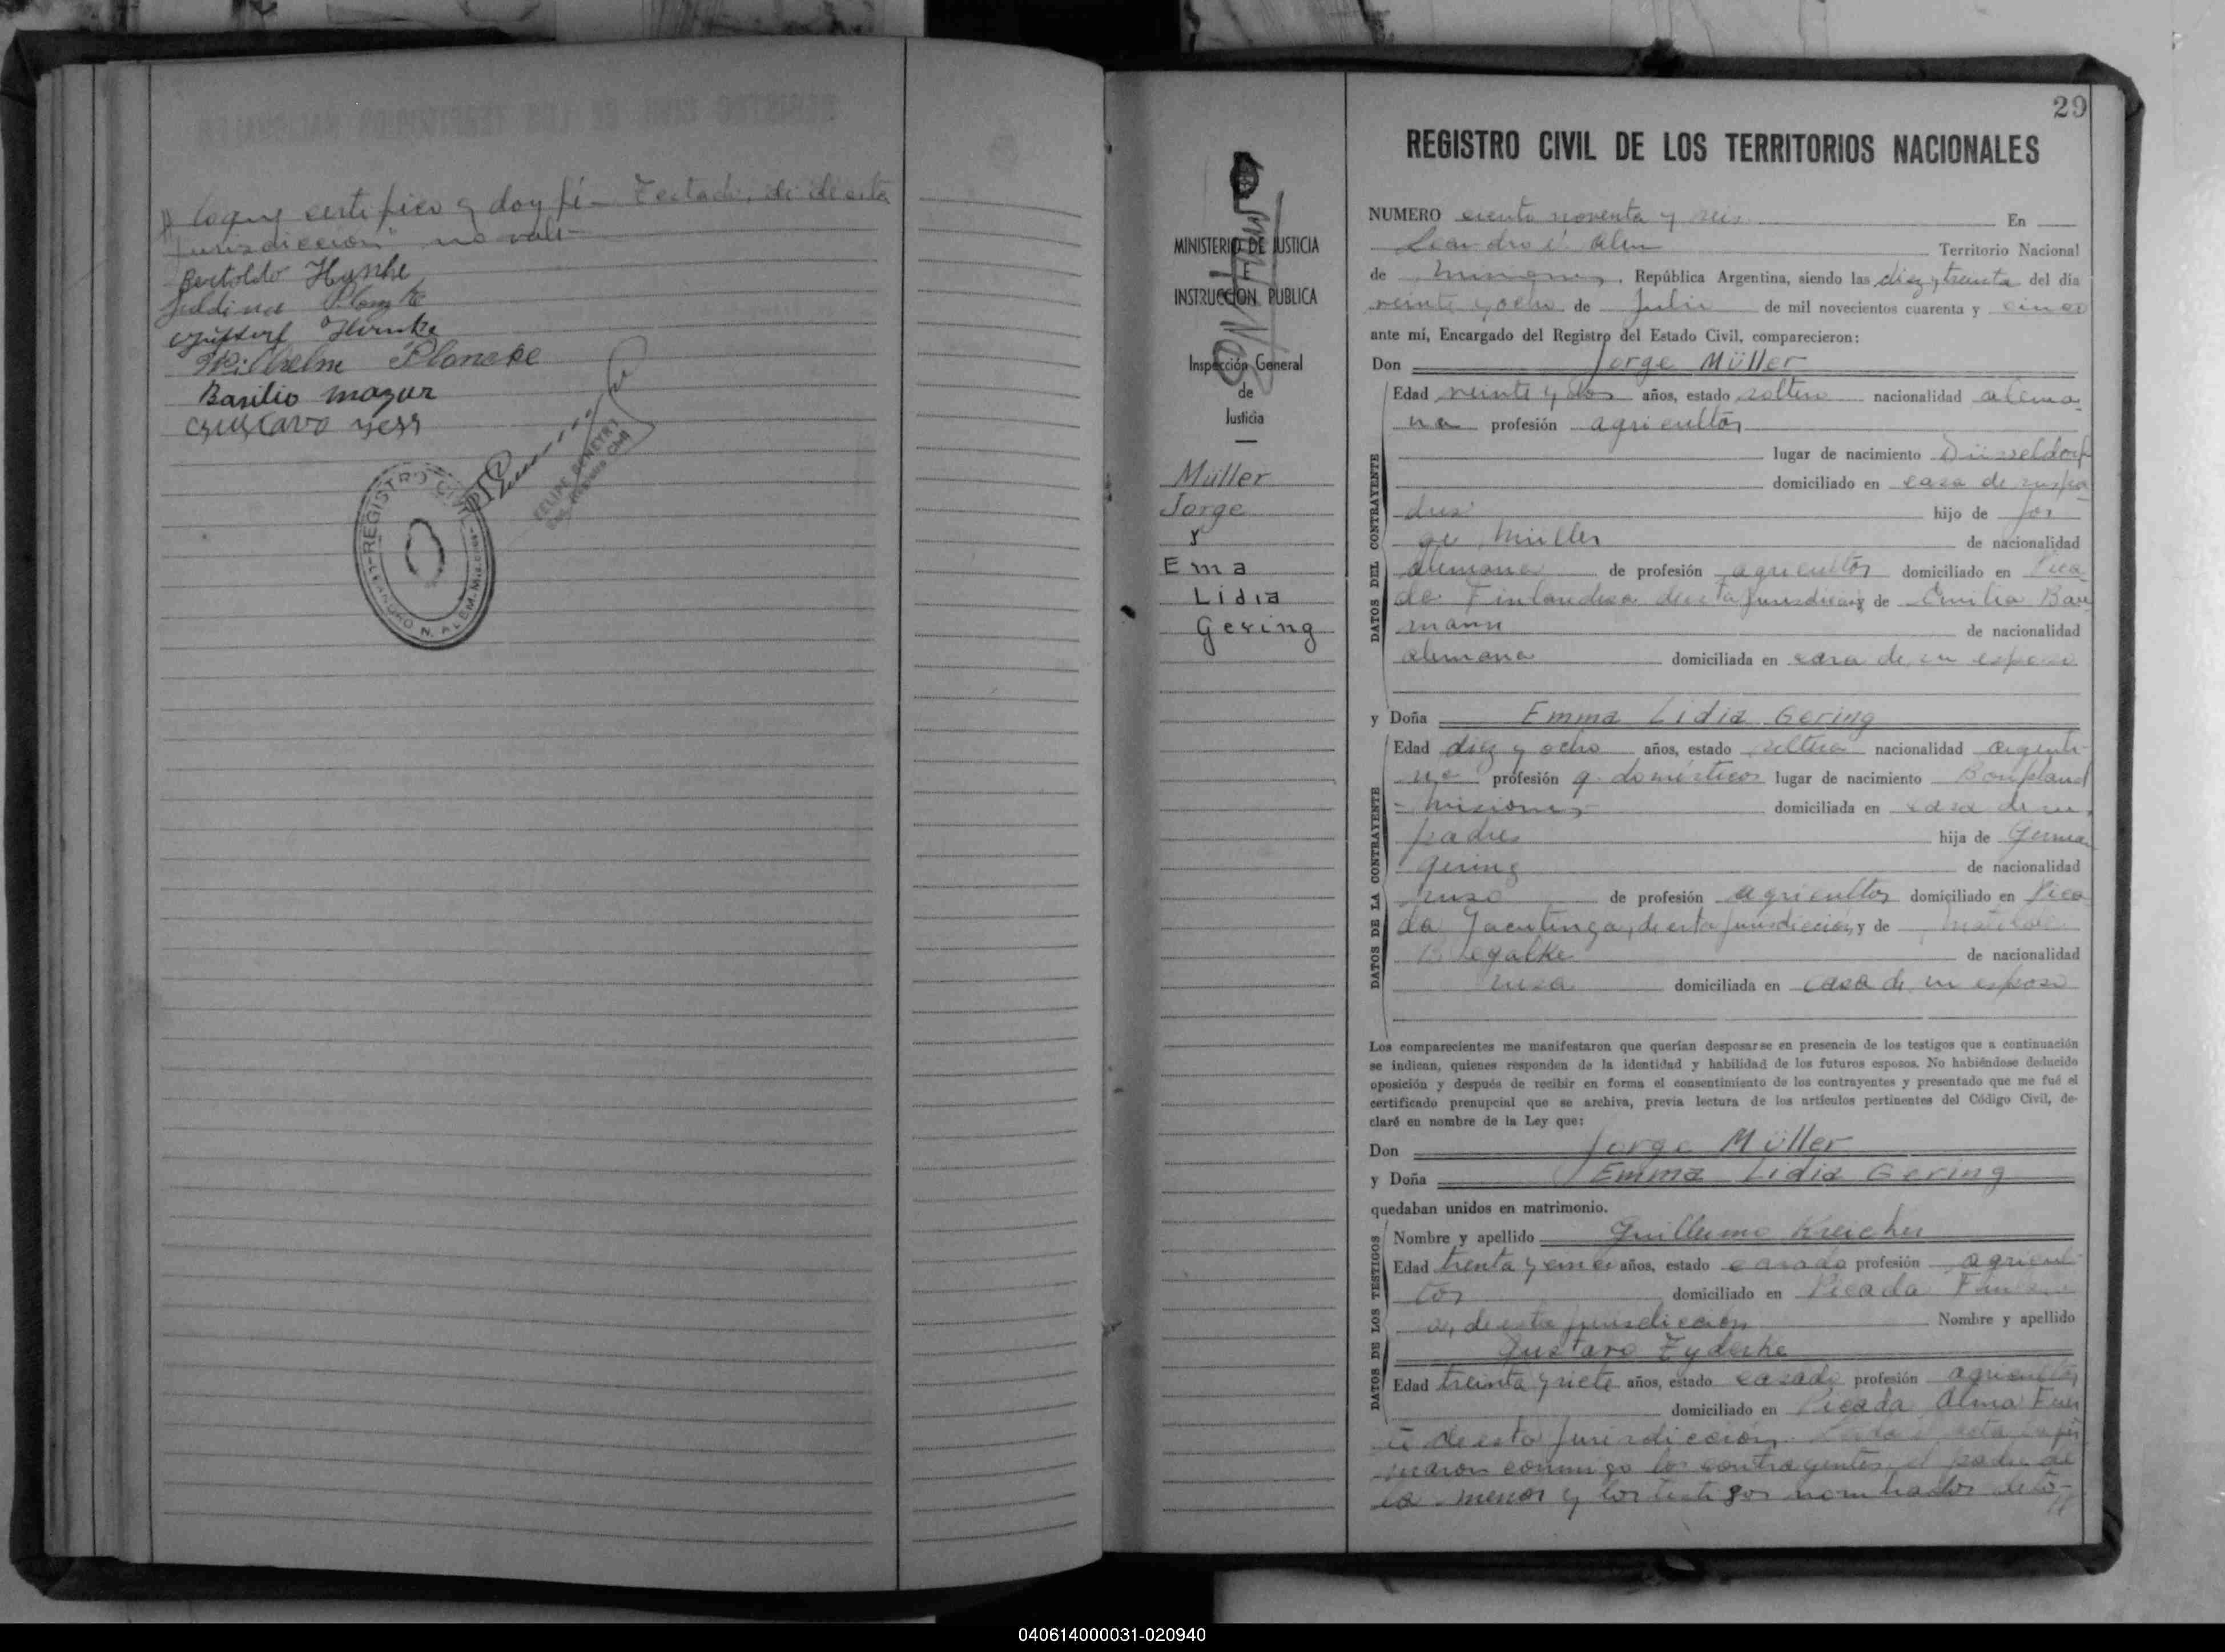 lo que certifico y doy fé - Testado: de de esta
jurisdiccion" no vale -
Bertoldo Hunke
Plonzke
Wilhelm Ploncke
Basilio mazur
REGISTRO CIVIL
N. ALEM-Misiones
FELIPE BENEYRI
Registro Civil
MINISTERIO DE JUSTICIA
INSTRUCCION PUBLICA
Inspección General
de
Justicia
Müller
Jorge
y
Ema
Lidia
Gering
29
REGISTRO CIVIL DE LOS TERRITORIOS NACIONALES
NUMERO ciento noventa y seis En
Leandro N. Alem Territorio Nacional
de Misiones, República Argentina, siendo las diez y treinta del día
veinte y ocho de Julio de mil novecientos cuarenta y cinco
ante mí, Encargado del Registro del Estado Civil, comparecieron:
Don Jorge Müller
Edad veinte y dos años, estado soltero nacionalidad alema-
na profesión agricultor
lugar de nacimiento Düsseldorf
domiciliado en casa de sus pa-
dres hijo de Jor
ge Müller de nacionalidad
alemana de profesión agricultor domiciliado en Pica-
da Finlandesa de esta jurisdicción y de Emilia Bau
mann de nacionalidad
alemana domiciliada en casa de su esposo
DATOS DEL CONTRAYENTE
y Doña Emma Lidia Gering
Edad diez y ocho años, estado soltera nacionalidad argenti-
na profesión q. domésticos lugar de nacimiento Bonpland
- Misiones - domiciliada en casa de sus
padres hija de German
Gering de nacionalidad
ruso de profesión agricultor domiciliado en Pica
da Yacutinga, de esta jurisdicción, y de Matilde
de nacionalidad
rusa domiciliada en casa de su esposo
DATOS DE LA CONTRAYENTE
Los comparecientes me manifestaron que querían desposarse en presencia de los testigos que a continuación
se indican, quienes responden de la identidad y habilidad de los futuros esposos. No habiéndose deducido
oposición y después de recibir en forma el consentimiento de los contrayentes y presentado que me fué el
certificado prenupcial que se archiva, previa lectura de los artículos pertinentes del Código Civil, de-
claré en nombre de la Ley que:
Don Jorge Müller
y Doña Emma Lidia Gering
quedaban unidos en matrimonio.
Nombre y apellido Guillermo Kreicher
Edad treinta y cinco años, estado casado profesión agricul-
tor domiciliado en Picada
de esta jurisdicción Nombre y apellido
Gustavo Zyderke
Edad treinta y siete años, estado casado profesión agricultor
domiciliado en Picada Alma Fuer
te de esta jurisdicción. Leida el acta la fir
maron conmigo los contrayentes, el padre de
la menor y los testigos nombrados de to-
DATOS DE LOS TESTIGOS
040614000031-020940